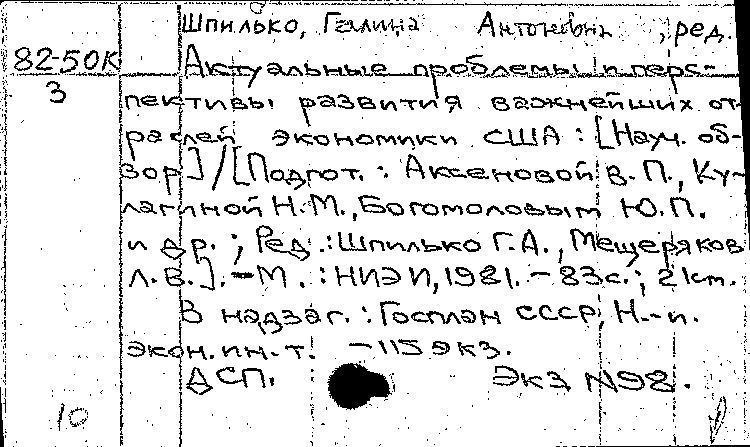 Шпилько, Галина Антоновна, ред.
82-50К
3
Актуальные проблемы и перс-
пективы развития важнейших от-
раслей экономики США : [Науч. об-
зор] / [Подгот. : Аксеновой В. П., Ку-
лагиной Н.М., Богомоловым Ю.П.
и др. ; Ред. : Шпилько Г.А., Мещеряков
Л.В.]. - М. : НИЭИ, 1981. - 83с. ; 21 см.
В надзаг. : Госплан СССР, Н.-и.
экон. ин-т. - 115 экз.
ДСП. Экз. №98.
10